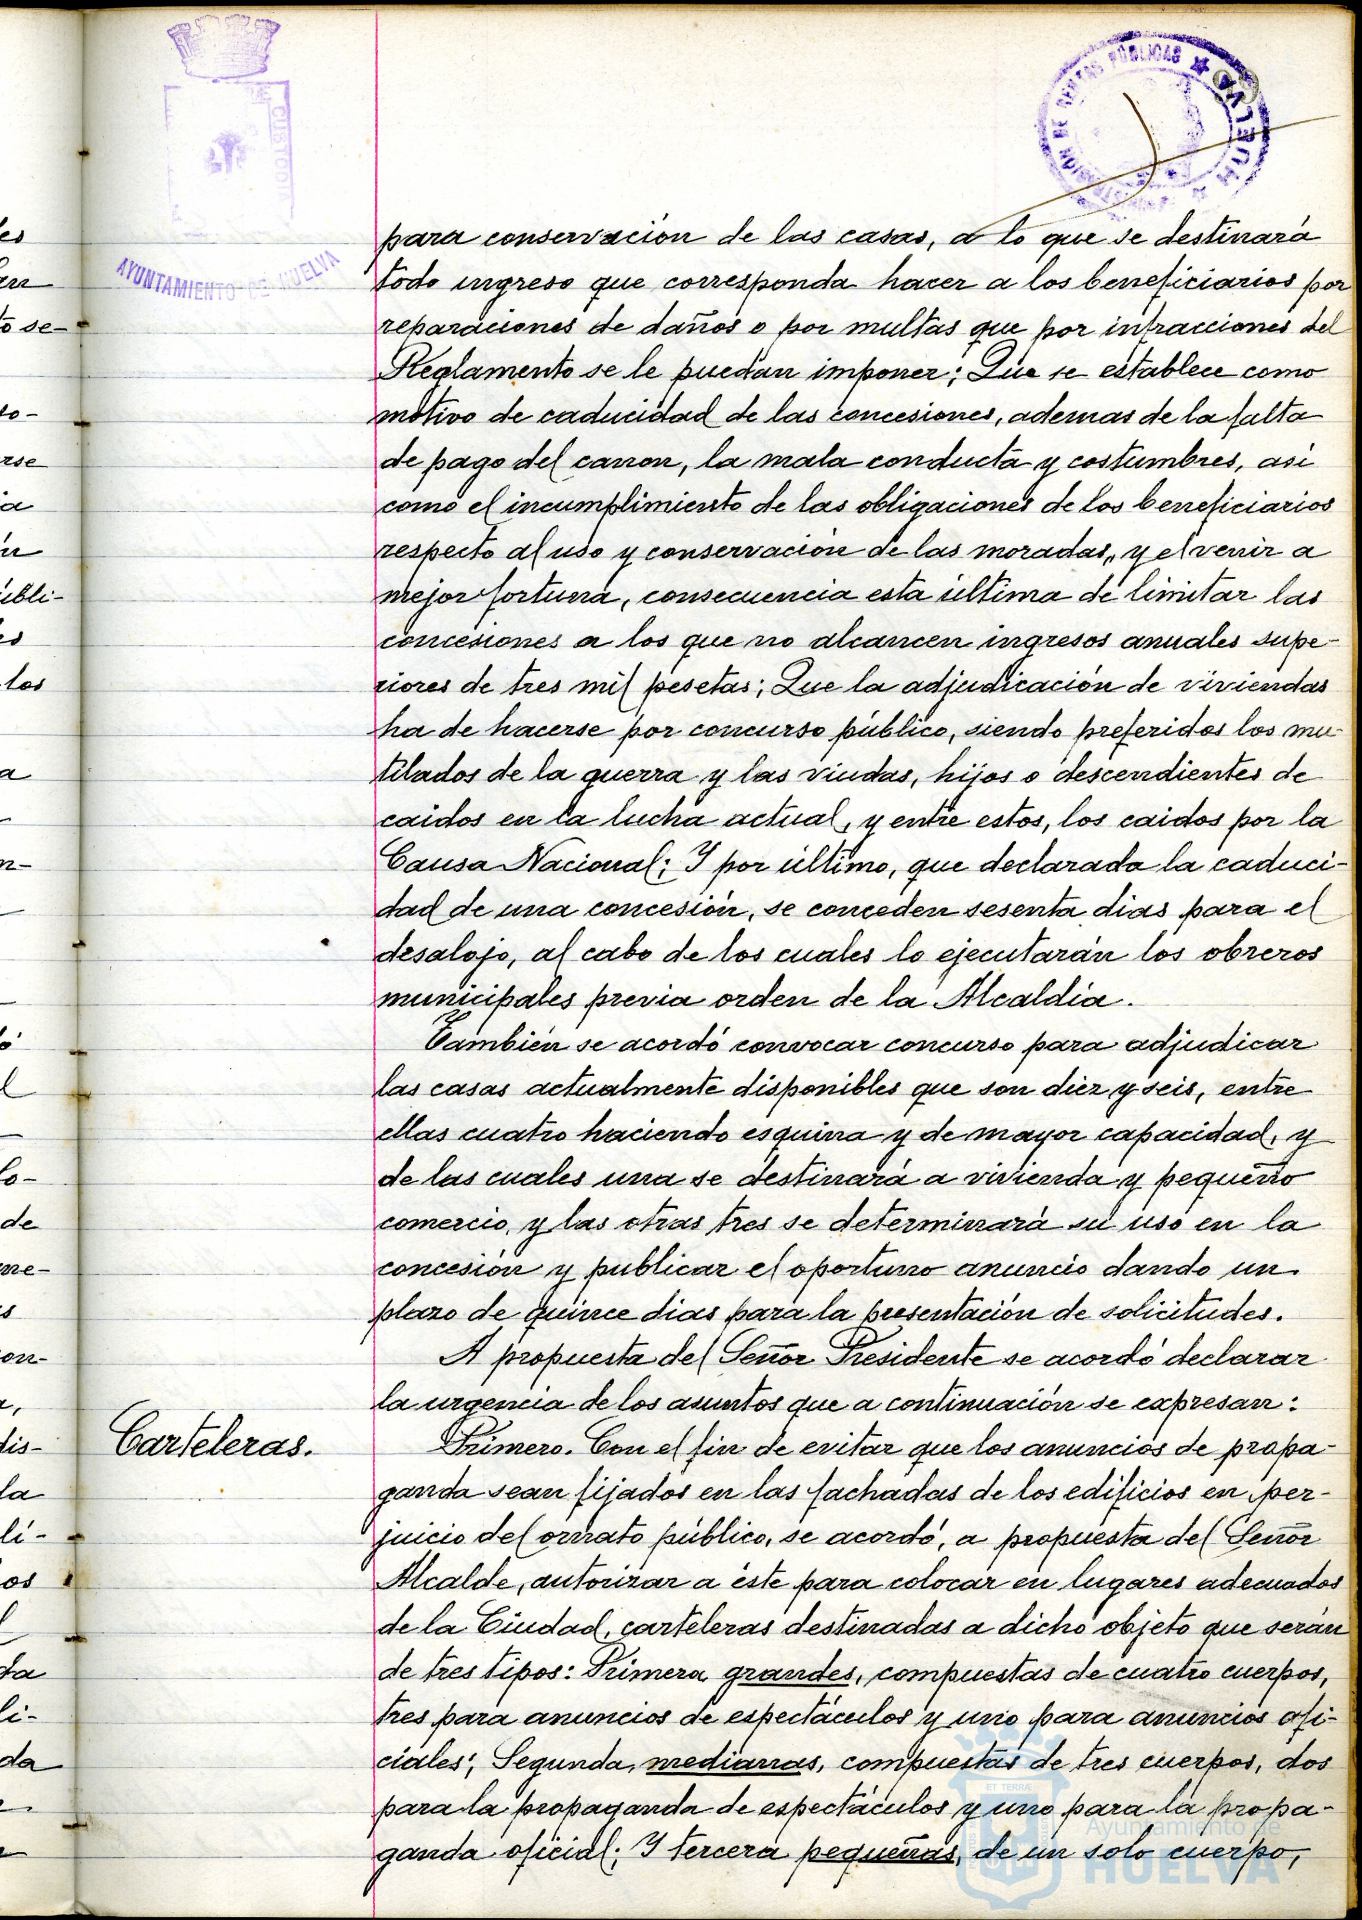 ADMINISTRACIÓN DE RENTAS PÚBLICAS ★ HUELVA ★
CUSTODIT
AYUNTAMIENTO DE HUELVA
para conservación de las casas, a lo que se destinará
todo ingreso que corresponda hacer a los beneficiarios por
reparaciones de daños o por multas que por infracciones del
Reglamento se le puedan imponer; Que se establece como
motivo de caducidad de las concesiones, ademas de la falta
de pago del canon, la mala conducta y costumbres, asi
como el incumplimiento de las obligaciones de los beneficiarios
respecto al uso y conservación de las moradas, y el venir a
mejor fortuna, consecuencia esta última de limitar las
concesiones a los que no alcancen ingresos anuales supe-
riores de tres mil pesetas; Que la adjudicación de viviendas
ha de hacerse por concurso público, siendo preferidos los mu-
tilados de la guerra y las viudas, hijos o descendientes de
caidos en la lucha actual, y entre estos, los caidos por la
Causa Nacional; Y por último, que declarada la caduci-
dad de una concesión, se conceden sesenta dias para el
desalojo, al cabo de los cuales lo ejecutarán los obreros
municipales previa orden de la Alcaldía.
También se acordó convocar concurso para adjudicar
las casas actualmente disponibles que son diez y seis, entre
ellas cuatro haciendo esquina y de mayor capacidad, y
de las cuales una se destinará a vivienda y pequeño
comercio, y las otras tres se determinará su uso en la
concesión y publicar el oportuno anuncio dando un
plazo de quince dias para la presentación de solicitudes.
A propuesta del Señor Presidente se acordó declarar
la urgencia de los asuntos que a continuación se expresan:
Carteleras.
Primero. Con el fin de evitar que los anuncios de propa-
ganda sean fijados en las fachadas de los edificios en per-
juicio del ornato público, se acordó, a propuesta del Señor
Alcalde, autorizar a éste para colocar en lugares adecuados
de la Ciudad, carteleras destinadas a dicho objeto que serán
de tres tipos: Primera grandes, compuestas de cuatro cuerpos,
tres para anuncios de espectáculos y uno para anuncios ofi-
ciales; Segunda, medianas, compuestas de tres cuerpos, dos
para la propaganda de espectáculos y uno para la propa-
ganda oficial; Y tercera pequeñas, de un solo cuerpo,
ET TERRÆ
Ayuntamiento de
HUELVA